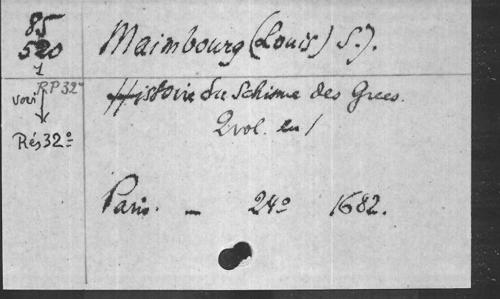 85
520
1
Maimbourg (Louis) S.J.
RP 32°
voir
Rés 32°
Histoire du Schisme des Grecs.
2 vol. en 1
Paris. — 24° 1682.